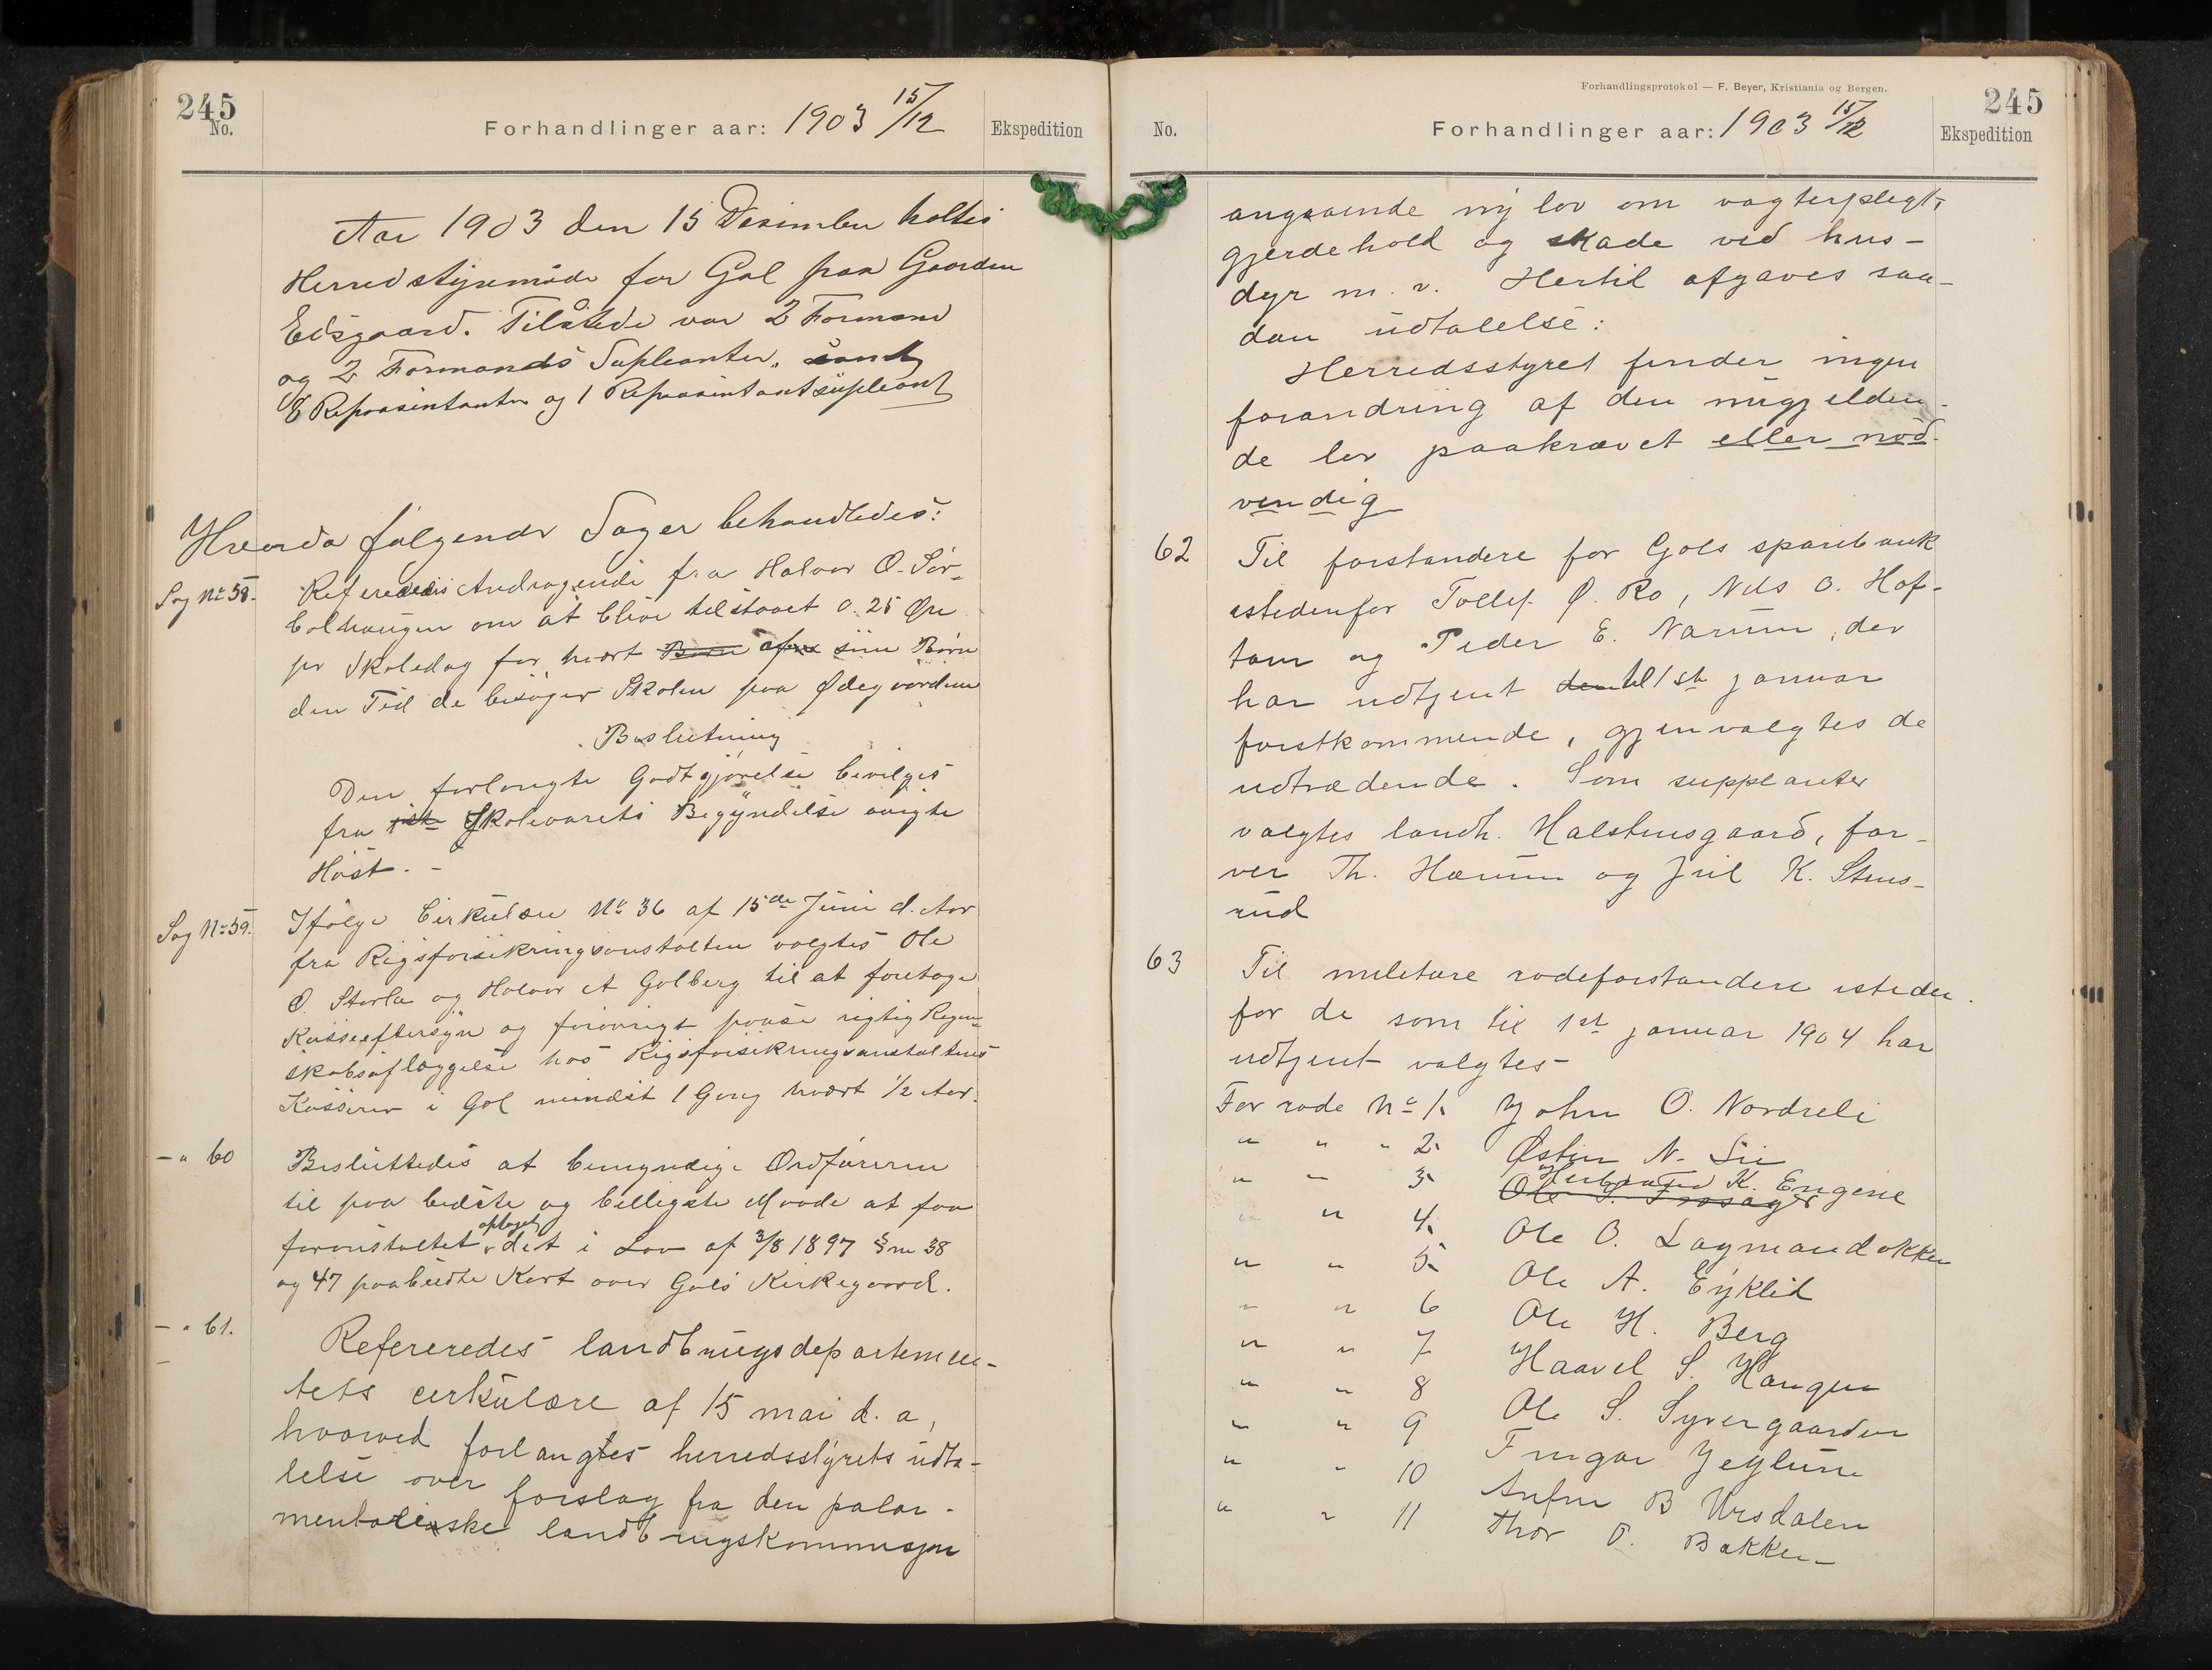 245
No.
Forhandlinger aar: 1903 15/12
Ekspedition
Aar 1903 den 15 Desember holtes
Herredstyremøde for Gol paa Gaarden
Eidsgaard. Tilstede var 2 Formænd
og 2 Formands Supleanter, samt
8 Repræsentanter og 1 Repræsentantsupleant
Hvorda følgende Sager behandledes:
Sag No 58.
Refereredes Andragende fra Halvor O. Sør-
bolhaugen om at blive tilstaaet 0.25 Øre
pr Skoledag for hvert Børn af sine Børn
den Tid de besøger Skolen paa Ødegaarden
Beslutning
Den forlangte Godtgjørelse bevilges
fra 1ste Skoleaarets Begyndelse avigte
Høst. -
Sag No 59.
Ifølge Cirkulære No 36 af 15de Juni d. Aar
fra Rigsforsikringsanstalten valgtes Ole
O. Storla og Halvor A Golberg til at foretage
Kasseeftersyn og forøvrigt paase rigtig Regn-
skabsaflæggelse hos Rigsforsikringsanstaltens
Kasserer i Gol mindst 1 Gang hvert 1/2 Aar.
— " 60
Besluttedes at bemyndige Ordføreren
til paa bedste og billigste Maade at faa
foranstaltet optaget det i Lov af 3/8 1897 § m 38
og 47 paabudte Kart over Gols Kirkegaard.
— " 61.
Refereredes landbrugsdepartemen-
tets cirkulære af 15 mai d. a,
hvorved forlangtes herredsstyrets udta-
lelse over forslag fra den palar-
mentariske landbrugskommisjon
Forhandlingsprotokol — F. Beyer, Kristiania og Bergen.
245
No.
Forhandlinger aar: 1903 15/12
Ekspedition
angaaende ny lov om vogterpligt,
gjerdehold og skade ved hus-
dyr m. v. Hertil afgaves saa-
dan udtalelse:
Herredsstyret finder ingen
forandring af den nugjelden-
de lov paakrævet eller nød-
vendig
62
Til forstandere for Gols sparebank
istedenfor Tollef O. Ro, Nils O. Hof-
tun og Peder E. Narum, der
har udtjent den til 1ste januar
førstkommende, gjenvalgtes de
udtrædende. Som suppleanter
valgtes landh. Halstensgaard, far-
ver Th. Hærum og Juel K. Stens-
rud
63
Til militære rodeforstandere isteden-
for de som til 1st januar 1904 har
udtjent valgtes
For rode No 1. John O. Nordreli
" " " 2. Østen N. Lie
" " 3. Ole T. Frosager Herbrand K. Engene
" " 4. Ole O. Lagmandokken
" " 5. Ole A. Eyklid
" " 6 Ole H. Berg
" " 7 Haavel S. Haugen
" " 8 Ole S. Syvergaarden
" " 9 Fingar Jeglum
" " 10 Anfin B Ursdalen
" " 11 Thor O. Bakken